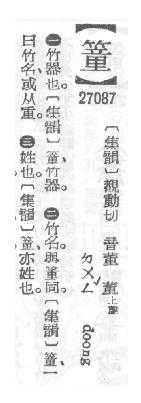 27087
〔集韻〕覩動切 音董 董上聲
ㄉㄨㄥˇ doong
㊀竹器也。〔集韻〕、竹器。㊁竹名。與箽同。〔集韻〕、一
曰竹名、或从重。㊂姓也。〔集韻〕、亦姓也。